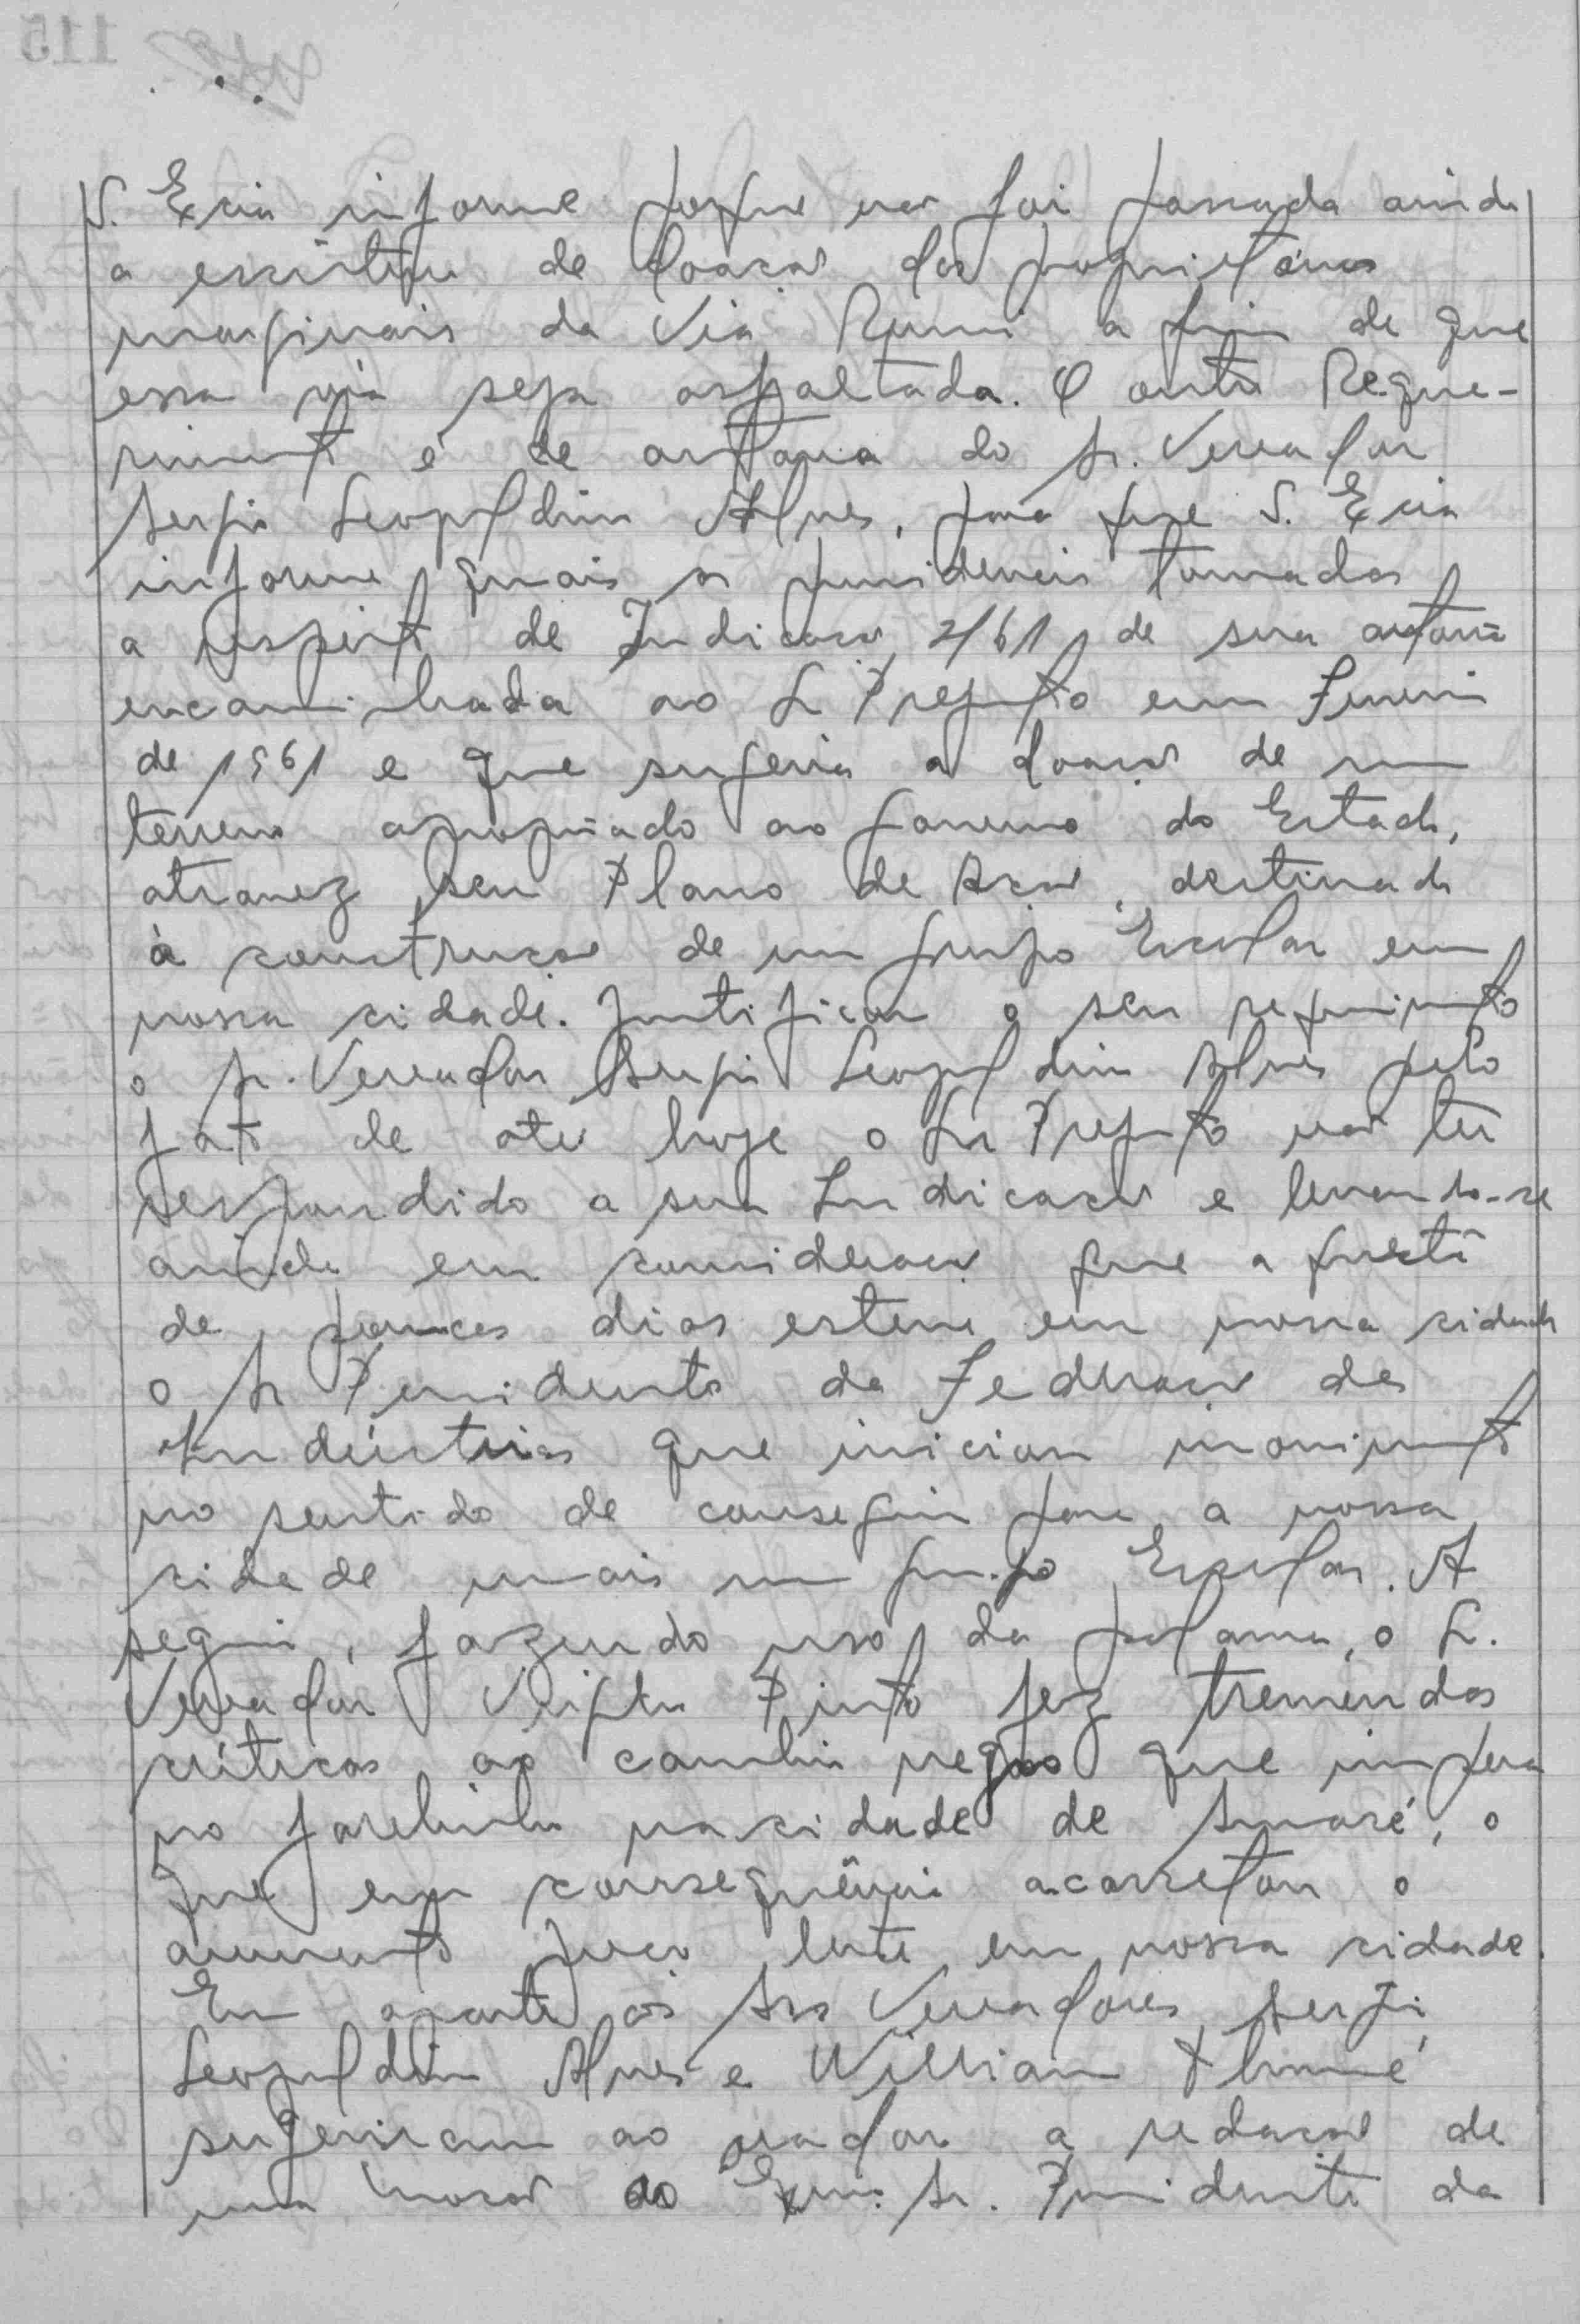 S. Excia informe porque não foi passada ainda
a escritura de doação dos proprietários
marginais da Via a fim de que
essa via seja asfaltada. O outro Reque-
rimento é de autoria do Sr. Vereador
Sergio Leopoldino Alves, para que S. Excia
informe quais as providencias tomadas
a respeito de Indicação 2/61 de sua autoria
encaminhada ao Sr Prefeito em Fevereiro
de 1961 e que sugeria a doação de um
terreno apropriado ao Governo do Estado,
atravez seu Plano de Ação, destinado
à construção de um grupo Escolar em
nossa cidade. Justificou o seu requerimento
o Sr. Vereador Sergio Leopoldino Alves pelo
fato de até hoje o Sr Prefeito não ter
respondido a sua Indicação e levando-se
ainda em consideração que a questão
de poucos dias esteve em nossa cidade
o Sr Presidente da Federação das
Indústrias que iniciou movimento
no sentido de conseguir para a nossa
cidade mais um grupo Escolar. A
seguir, fazendo uso da palavra, o Sr.
Vereador Pinto fez tremendas
críticas ao cambio negro que impera
no farelinho na cidade de Sumaré, o
que em consequência acarretou o
aumento preço leite em nossa cidade.
Em aparte os Srs Vereadores Sergio
Leopoldino Alves e William Thomé
sugeriram ao orador a redação de
uma moção ao Exmo. Sr. Presidente da